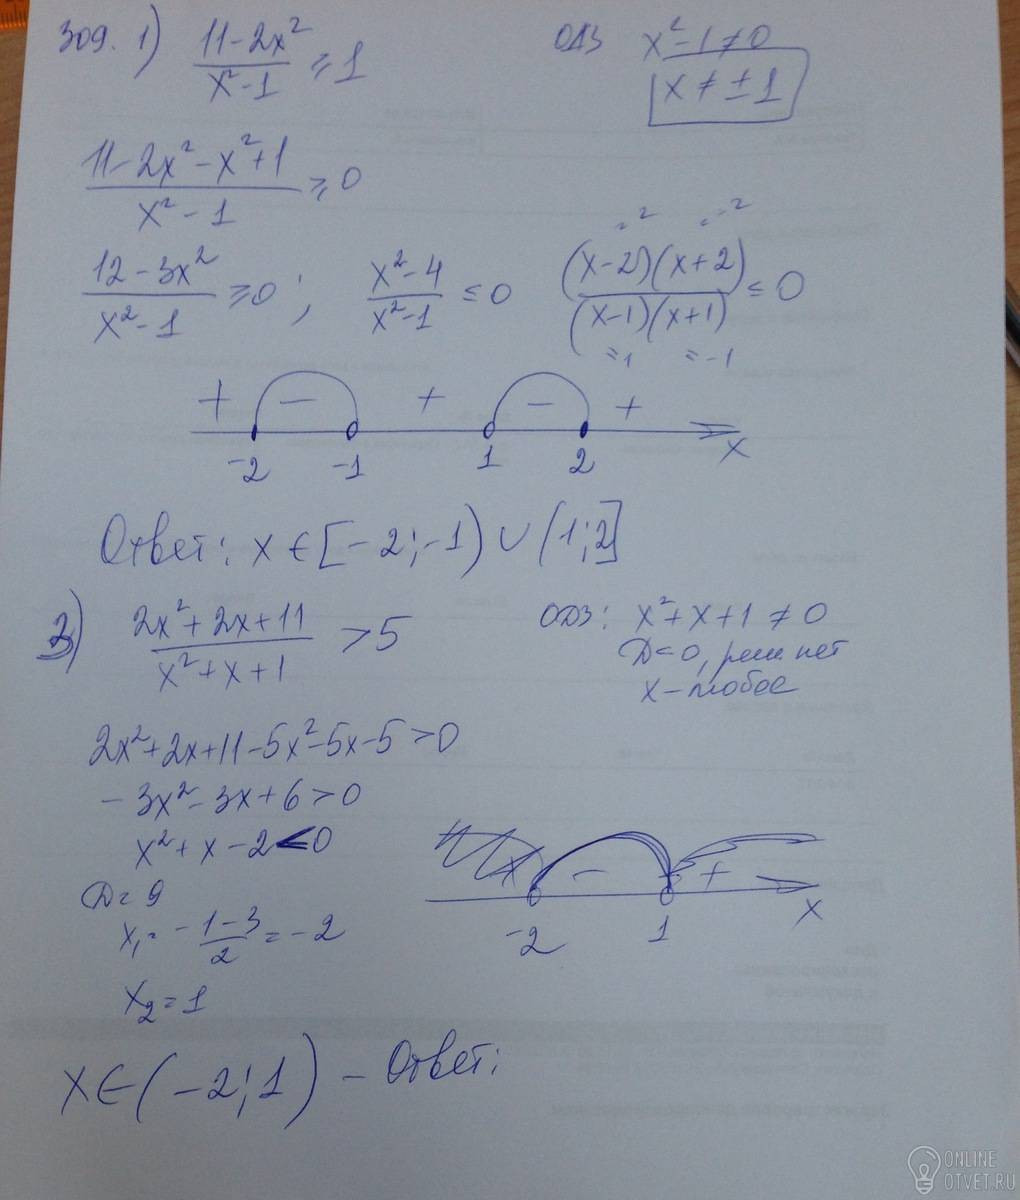 309. 1) (11-2x²)/(x²-1) ≥ 1
ОДЗ x²-1≠0
x ≠ ±1
(11-2x²-x²+1)/(x²-1) ≥ 0
=2 =-2
(12-3x²)/(x²-1) ≥0 ; (x²-4)/(x²-1) ≤ 0 ((x-2)(x+2))/((x-1)(x+1)) ≤ 0
=1 =-1
+ - + - +
-2 -1 1 2 x
Ответ: x ∈ [-2;-1) ∪ (1;2]
3) (2x²+2x+11)/(x²+x+1) > 5
ОДЗ: x²+x+1 ≠ 0
D<0, реш нет
x - любое
2x²+2x+11-5x²-5x-5>0
-3x²-3x+6>0
x²+x-2<0
D=9
x₁= (-1-3)/2 = -2
x₂=1
- +
-2 1 x
x∈(-2;1) - Ответ:
ONLINE
OTVET.RU